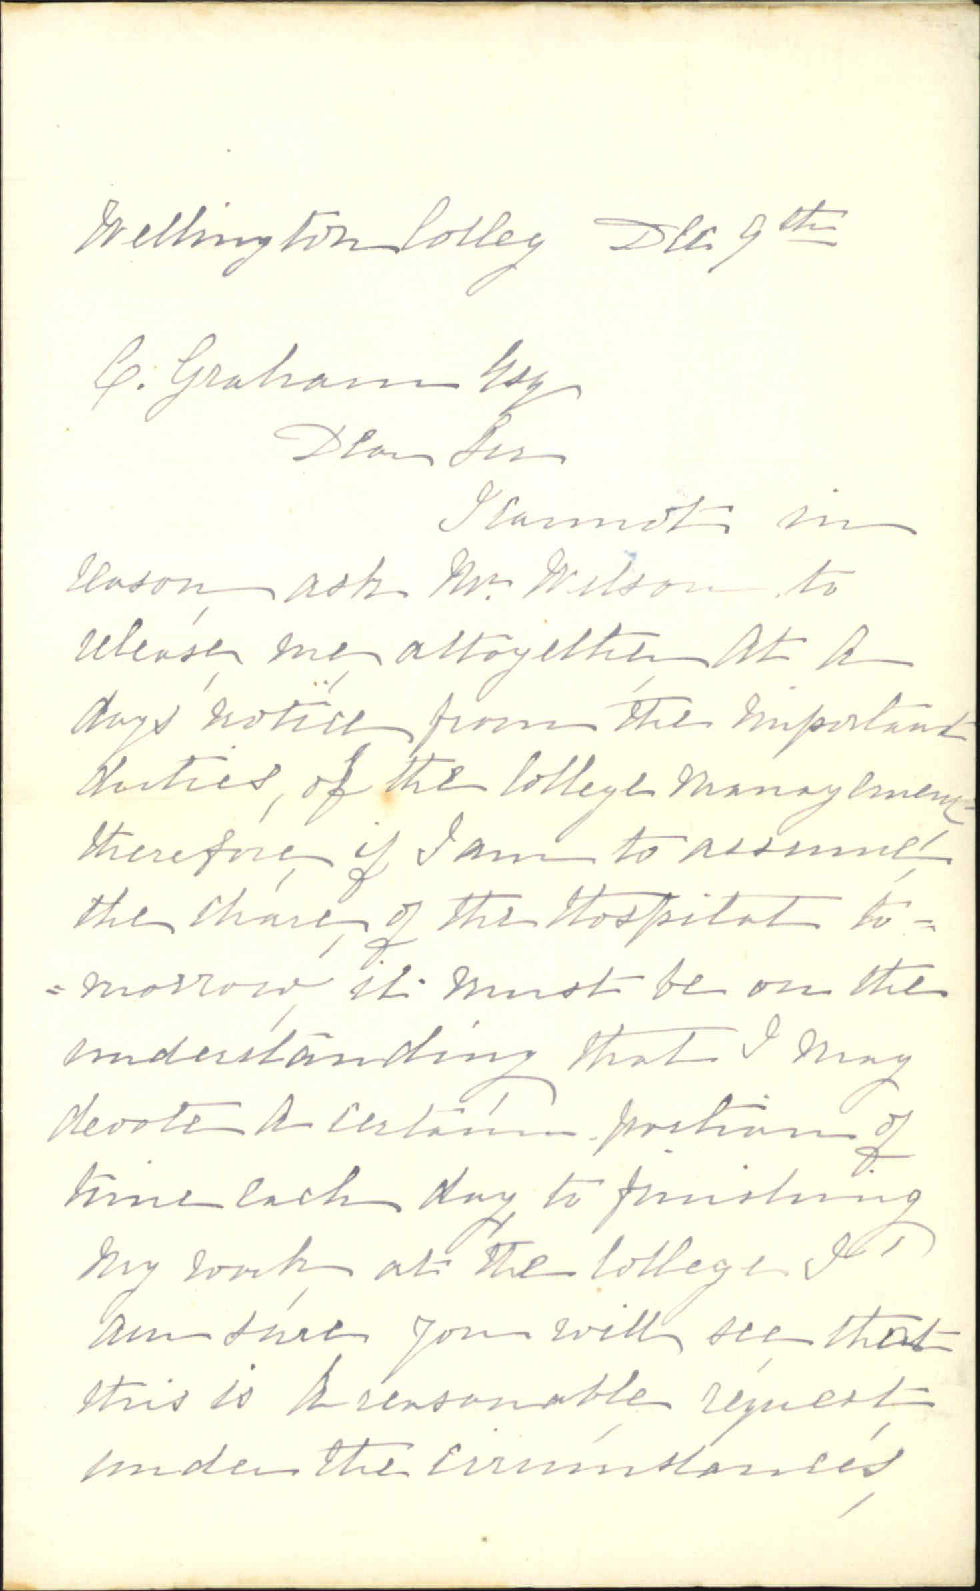 Wellington Colleg Dec 9th
C. Graham Esq
Dear Sir
I cannot in
reason ask Mr. Wilson to
release me altogether at a
days notice from the important
duties, of the College Managemen
therefore, if I am to assume
the chare, of the Hospital to=
=morrow, it must be on the
understanding that I may
devote a certain portion of
time each day to finishing
my work at the College I
am sure you will see that
this is a reasonable request
under the circumstances,